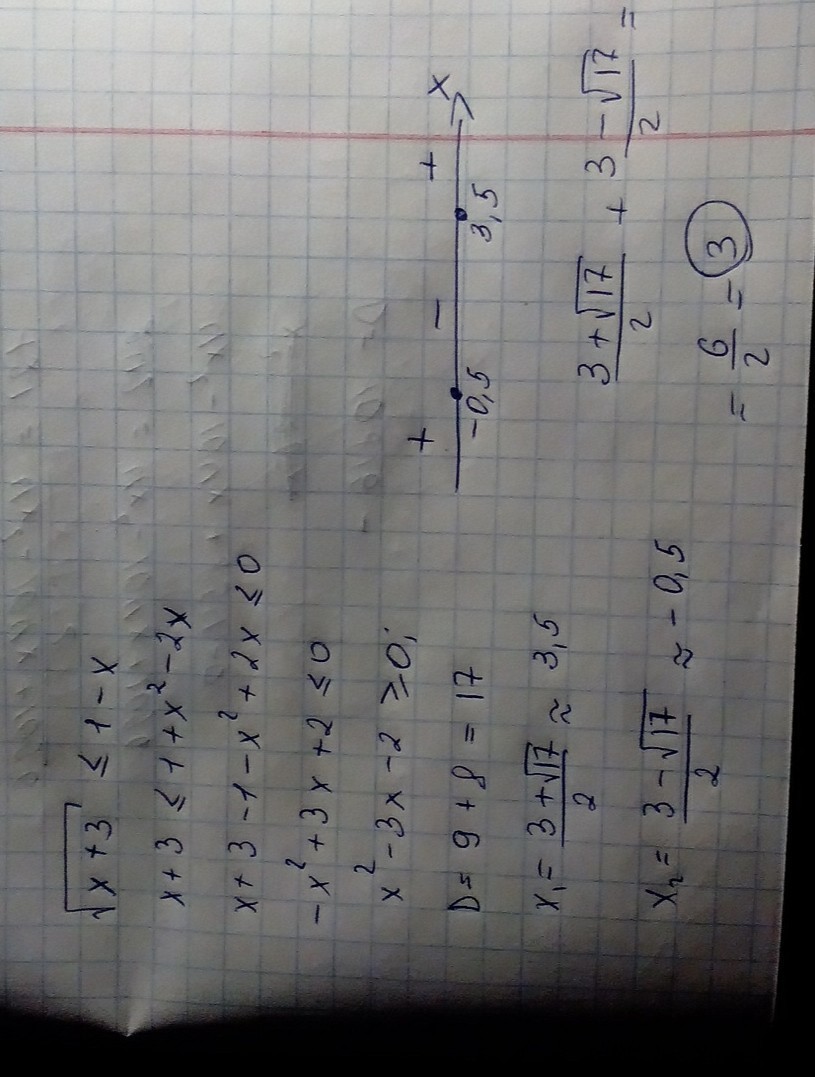 √(x+3) ≤ 1-x
x+3 ≤ 1+x²-2x
x+3-1-x²+2x ≤ 0
-x²+3x+2 ≤ 0
x²-3x-2 ≥ 0;
D= 9+8 = 17
x₁= (3+√17)/2 ≈ 3,5
x₂= (3-√17)/2 ≈ -0,5
+ - + x
-0,5 3,5
(3+√17)/2 + (3-√17)/2 =
= 6/2 = 3